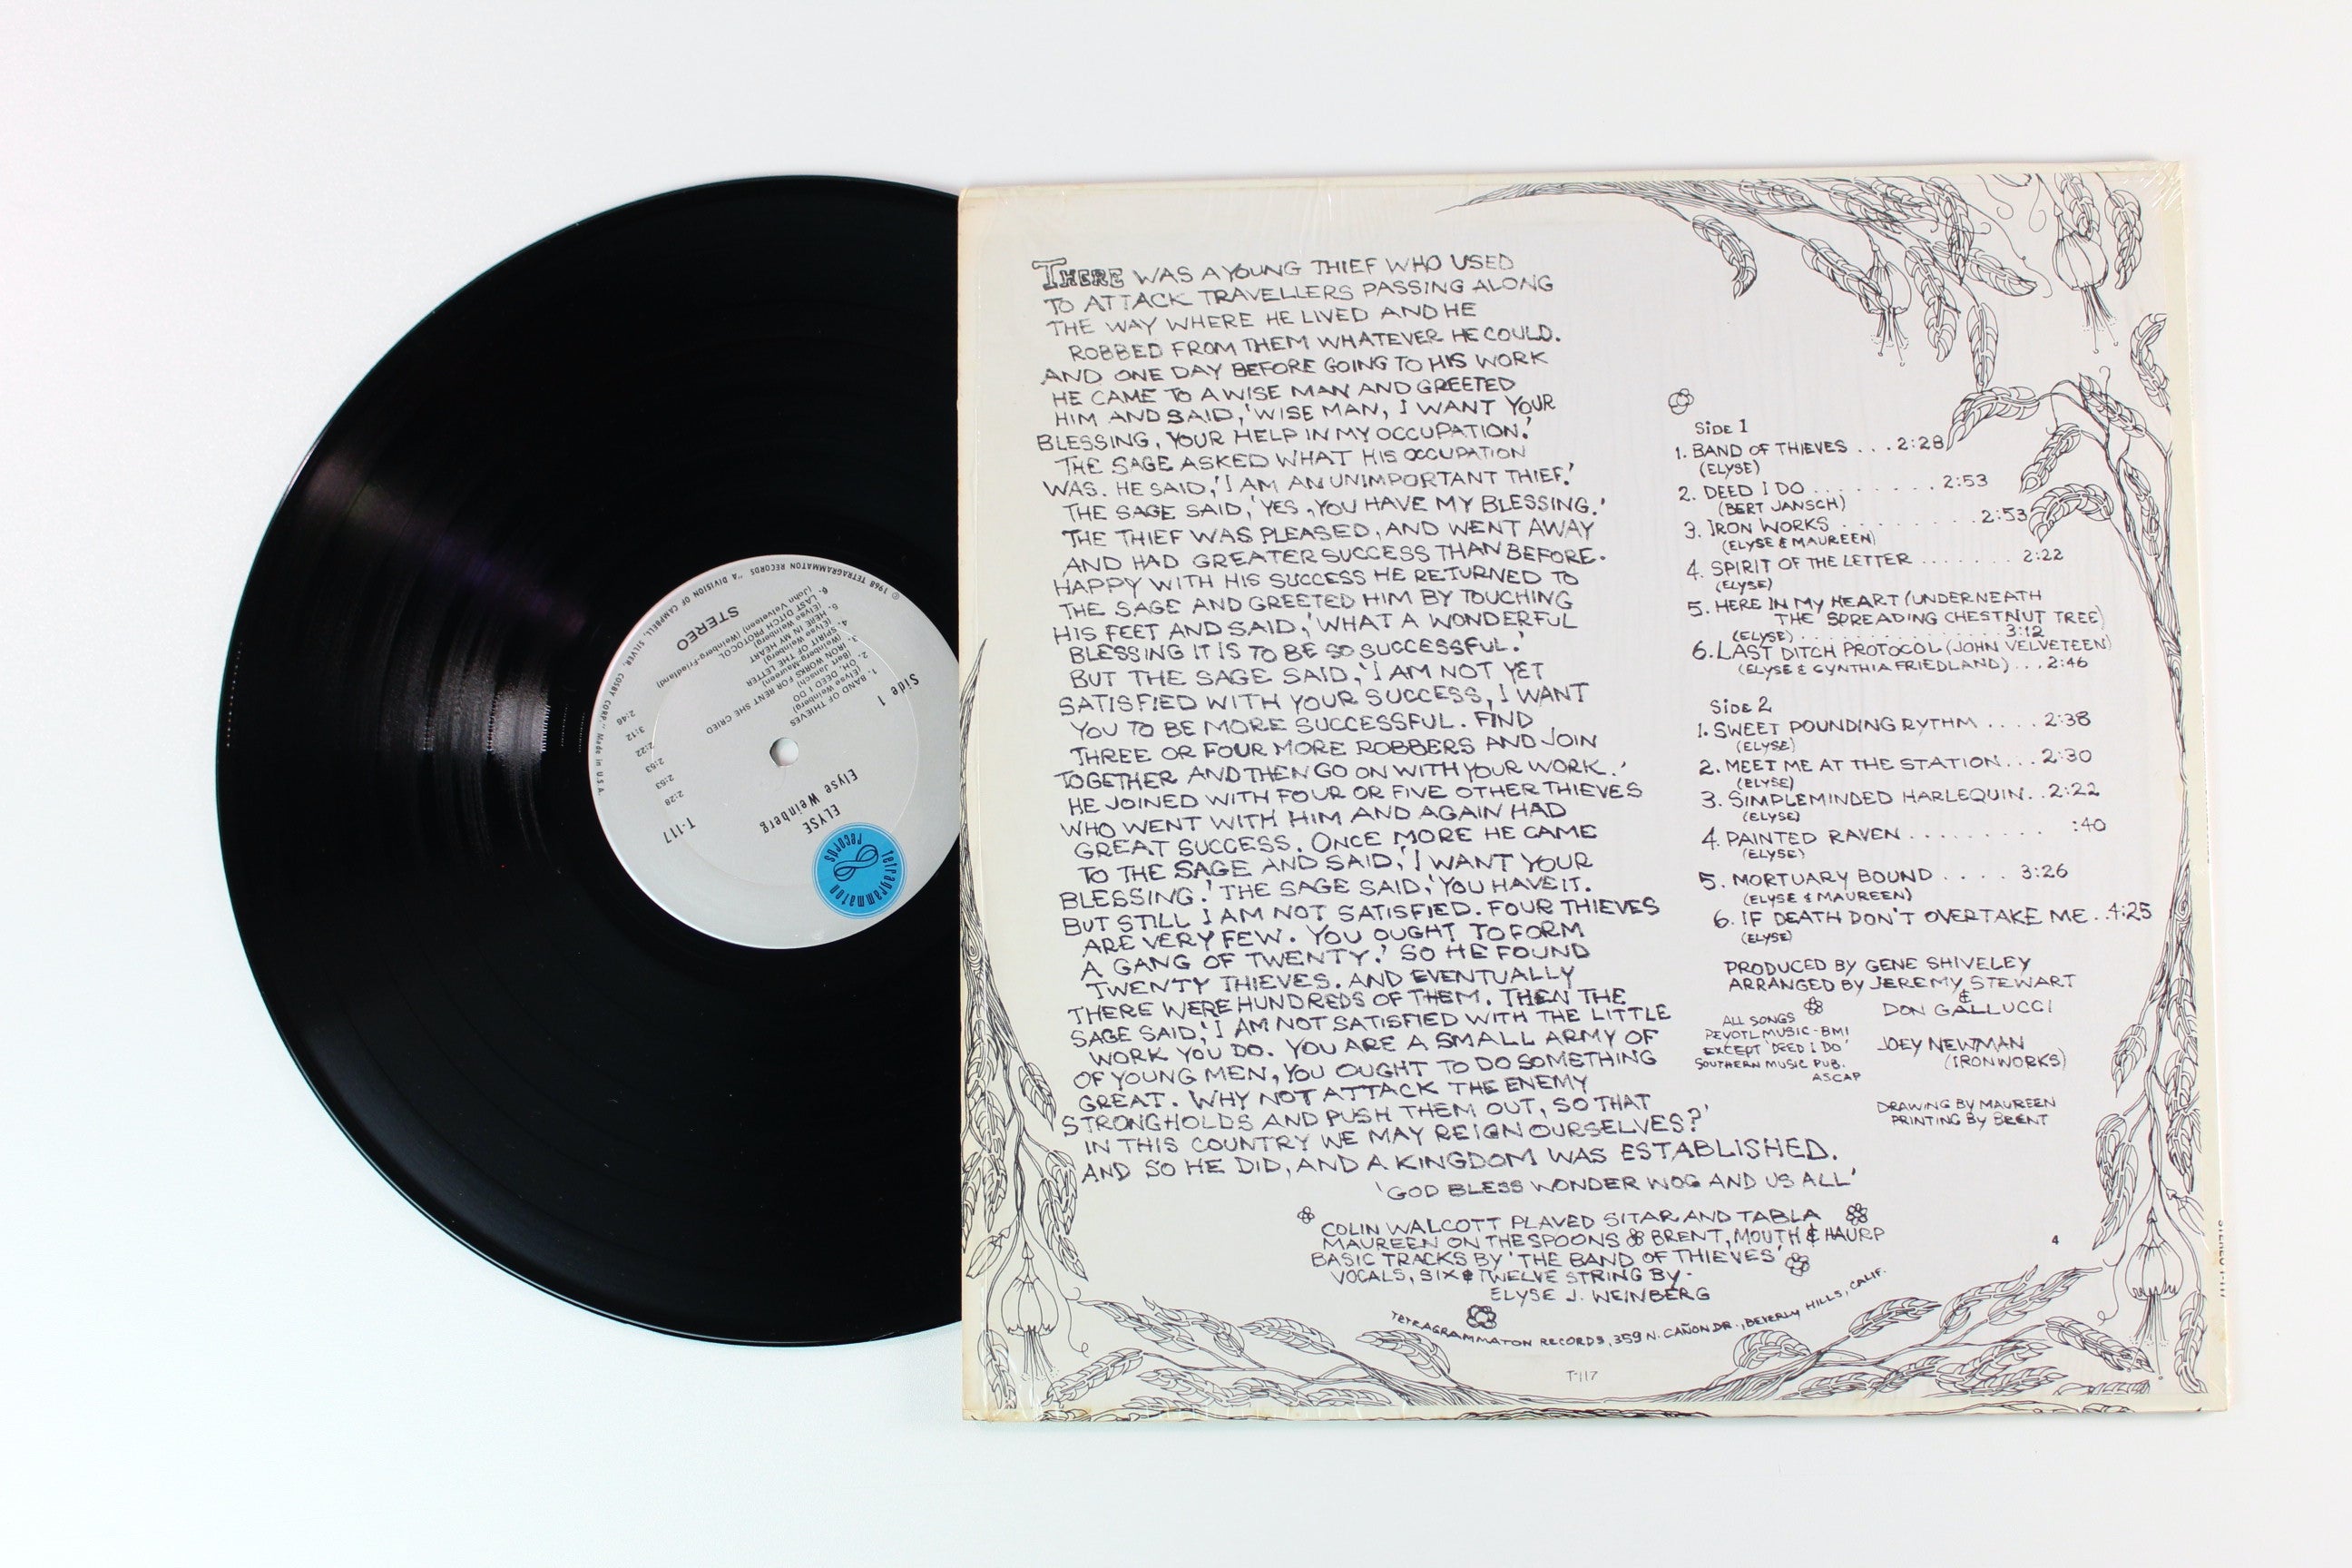 THERE WAS A YOUNG THIEF WHO USED
TO ATTACK TRAVELLERS PASSING ALONG
THE WAY WHERE HE LIVED AND HE
ROBBED FROM THEM WHATEVER HE COULD.
AND ONE DAY BEFORE GOING TO HIS WORK
HE CAME TO A WISE MAN AND GREETED
HIM AND SAID, 'WISE MAN, I WANT YOUR
BLESSING, YOUR HELP IN MY OCCUPATION.'
THE SAGE ASKED WHAT HIS OCCUPATION
WAS. HE SAID, 'I AM AN UNIMPORTANT THIEF.'
THE SAGE SAID, 'YES, YOU HAVE MY BLESSING.'
THE THIEF WAS PLEASED, AND WENT AWAY
AND HAD GREATER SUCCESS THAN BEFORE.
HAPPY WITH HIS SUCCESS HE RETURNED TO
THE SAGE AND GREETED HIM BY TOUCHING
HIS FEET AND SAID, 'WHAT A WONDERFUL
BLESSING IT IS TO BE SO SUCCESSFUL.'
BUT THE SAGE SAID, 'I AM NOT YET
SATISFIED WITH YOUR SUCCESS, I WANT
YOU TO BE MORE SUCCESSFUL. FIND
THREE OR FOUR MORE ROBBERS AND JOIN
TOGETHER AND THEN GO ON WITH YOUR WORK.'
HE JOINED WITH FOUR OR FIVE OTHER THIEVES
WHO WENT WITH HIM AND AGAIN HAD
GREAT SUCCESS. ONCE MORE HE CAME
TO THE SAGE AND SAID, 'I WANT YOUR
BLESSING.' THE SAGE SAID, 'YOU HAVE IT.
BUT STILL I AM NOT SATISFIED. FOUR THIEVES
ARE VERY FEW. YOU OUGHT TO FORM
A GANG OF TWENTY.' SO HE FOUND
TWENTY THIEVES. AND EVENTUALLY
THERE WERE HUNDREDS OF THEM. THEN THE
SAGE SAID, 'I AM NOT SATISFIED WITH THE LITTLE
WORK YOU DO. YOU ARE A SMALL ARMY OF
OF YOUNG MEN, YOU OUGHT TO DO SOMETHING
GREAT. WHY NOT ATTACK THE ENEMY
STRONGHOLDS AND PUSH THEM OUT, SO THAT
IN THIS COUNTRY WE MAY REIGN OURSELVES?'
AND SO HE DID, AND A KINGDOM WAS ESTABLISHED.
'GOD BLESS WONDER WOG AND US ALL'
COLIN WALCOTT PLAYED SITAR AND TABLA
MAUREEN ON THE SPOONS BRENT, MOUTH & HAURP
BASIC TRACKS BY 'THE BAND OF THIEVES'
VOCALS, SIX & TWELVE STRING BY-
ELYSE J. WEINBERG
TETRAGRAMMATON RECORDS, 359 N. CAÑON DR., BEVERLY HILLS, CALIF.
T-117
SIDE 1
1. BAND OF THIEVES . . . 2:28
(ELYSE)
2. DEED I DO . . . . . . . . 2:53
(BERT JANSCH)
3. IRON WORKS . . . . . . . . . 2:53
(ELYSE & MAUREEN)
4. SPIRIT OF THE LETTER . . . . . . . 2:22
(ELYSE)
5. HERE IN MY HEART (UNDERNEATH
THE SPREADING CHESTNUT TREE)
(ELYSE) . . . . . . . . . . . . . . 3:12
6. LAST DITCH PROTOCOL (JOHN VELVETEEN)
(ELYSE & CYNTHIA FRIEDLAND) . . . 2:46
SIDE 2
1. SWEET POUNDING RYTHM . . . . 2:38
(ELYSE)
2. MEET ME AT THE STATION . . . 2:30
(ELYSE)
3. SIMPLEMINDED HARLEQUIN . . 2:22
(ELYSE)
4. PAINTED RAVEN . . . . . . . . . :40
(ELYSE)
5. MORTUARY BOUND . . . . 3:26
(ELYSE & MAUREEN)
6. IF DEATH DON'T OVERTAKE ME . . 4:25
(ELYSE)
PRODUCED BY GENE SHIVELEY
ARRANGED BY JEREMY STEWART
&
DON GALLUCCI
JOEY NEWMAN
(IRONWORKS)
ALL SONGS
PEVOTL MUSIC - BMI
EXCEPT 'DEED I DO'
SOUTHERN MUSIC PUB.
ASCAP
DRAWING BY MAUREEN
PRINTING BY BRENT
4
STEREO T-117
tetragrammaton records
ELYSE
Elyse Weinberg
T-117
Side 1
1. BAND OF THIEVES 2:28
(Elyse Weinberg)
2. OH, DEED I DO 2:53
(Bert Jansch)
3. IRON WORKS FOR RENT SHE CRIED 2:53
(Weinberg-Maureen)
4. SPIRIT OF THE LETTER 2:22
(Elyse Weinberg)
5. HERE IN MY HEART 3:12
(Elyse Weinberg)
6. LAST DITCH PROTOCOL 2:46
(John Velveteen) (Weinberg-Friedland)
STEREO
© 1968 TETRAGRAMMATON RECORDS "A DIVISION OF CAMPBELL, SILVER, COSBY CORP." Made in U.S.A.